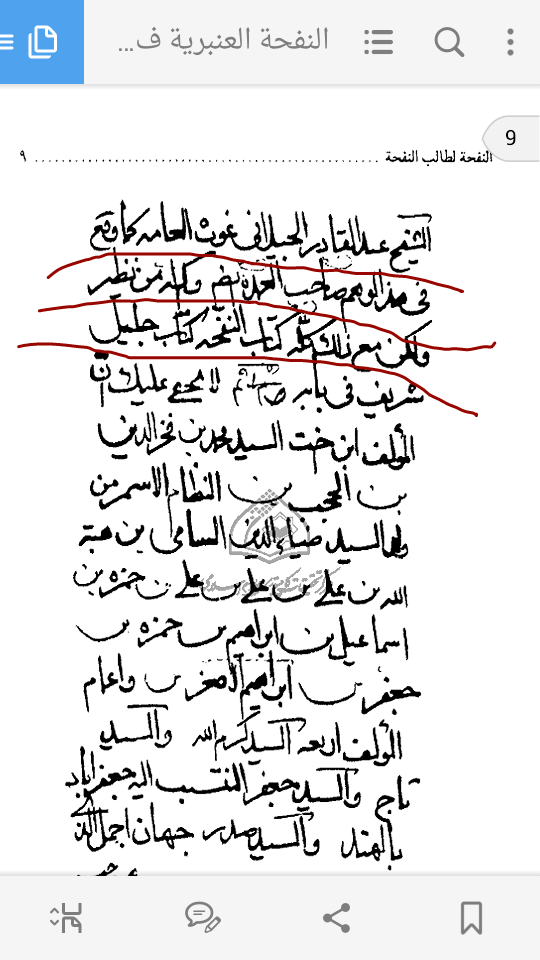 النفحة العنبرية ف...
9
النفحة لطالب النفحة ........ ٩
الشيخ عبد القادر الجيلاني غوث العامه كما وقع
في هذا الوهم صاحب العمدة وكله من نظر
ولكن مع ذلك كله كتاب النفحه كتاب جليل
شريف في بابه لا يخفى عليك ان
المؤلف ابن اخت السيد محمد بن فخر الدين
بن المحيب بن النظام الاسمر بن
السيد ضياء الدين السامي بن هبة
الله بن علي بن علي بن علي بن حمزه بن
اسماعيل بن ابراهيم بن حمزه بن
جعفر بن ابراهيم الاصغر بن واعام
المؤلف اربعه السيد كرم الله والسيد
تاج والسيد جعفر المنتسب اليه جعفراباد
بالهند والسيد صدر جهان اجمل